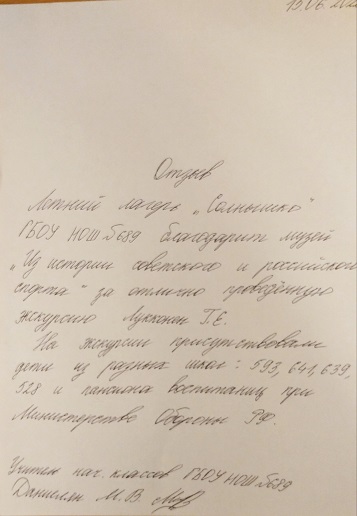 19.06.202
Отзыв
Летний лагерь „Солнышко"
ГБОУ НОШ №689 благодарит музей
„Из истории советского и российского
спорта" за отлично проведённую
экскурсию Лукконен Г.Е.
На экскурсии присутствовали
дети из разных школ: 593, 641, 639,
528 и пансиона воспитанниц при
Министерство Обороны РФ.
Учитель нач. классов ГБОУ НОШ №689
Даниелян М. В.